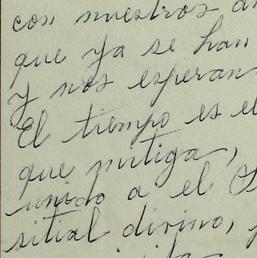 con nuestros
que ya se han
y nos esperan
El tiempo es el
que mitiga,
unido a el
sitial divino,